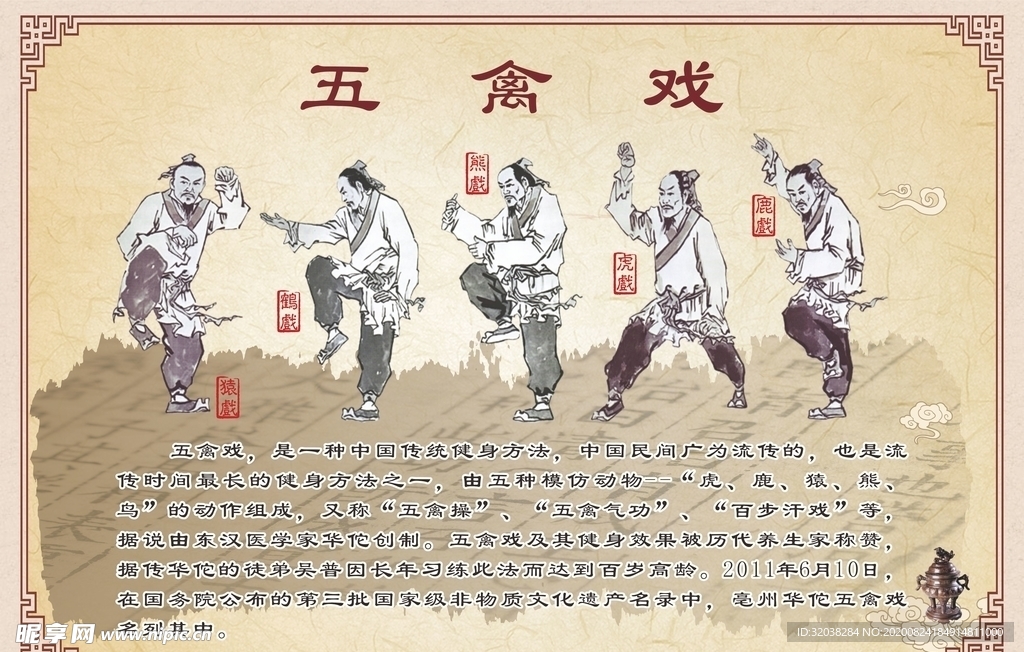 五禽戏
熊戲
鹿戲
虎戲
鶴戲
猿戲
五禽戏，是一种中国传统健身方法，中国民间广为流传的，也是流
传时间最长的健身方法之一，由五种模仿动物--“虎、鹿、猿、熊、
鸟”的动作组成，又称“五禽操”、“五禽气功”、“百步汗戏”等，
据说由东汉医学家华佗创制。五禽戏及其健身效果被历代养生家称赞，
据传华佗的徒弟吴普因长年习练此法而达到百岁高龄。2011年6月10日，
在国务院公布的第三批国家级非物质文化遗产名录中，亳州华佗五禽戏
名列其中。
昵享网 www.nipic.cn
ID:32038284 NO:20200824184914811000